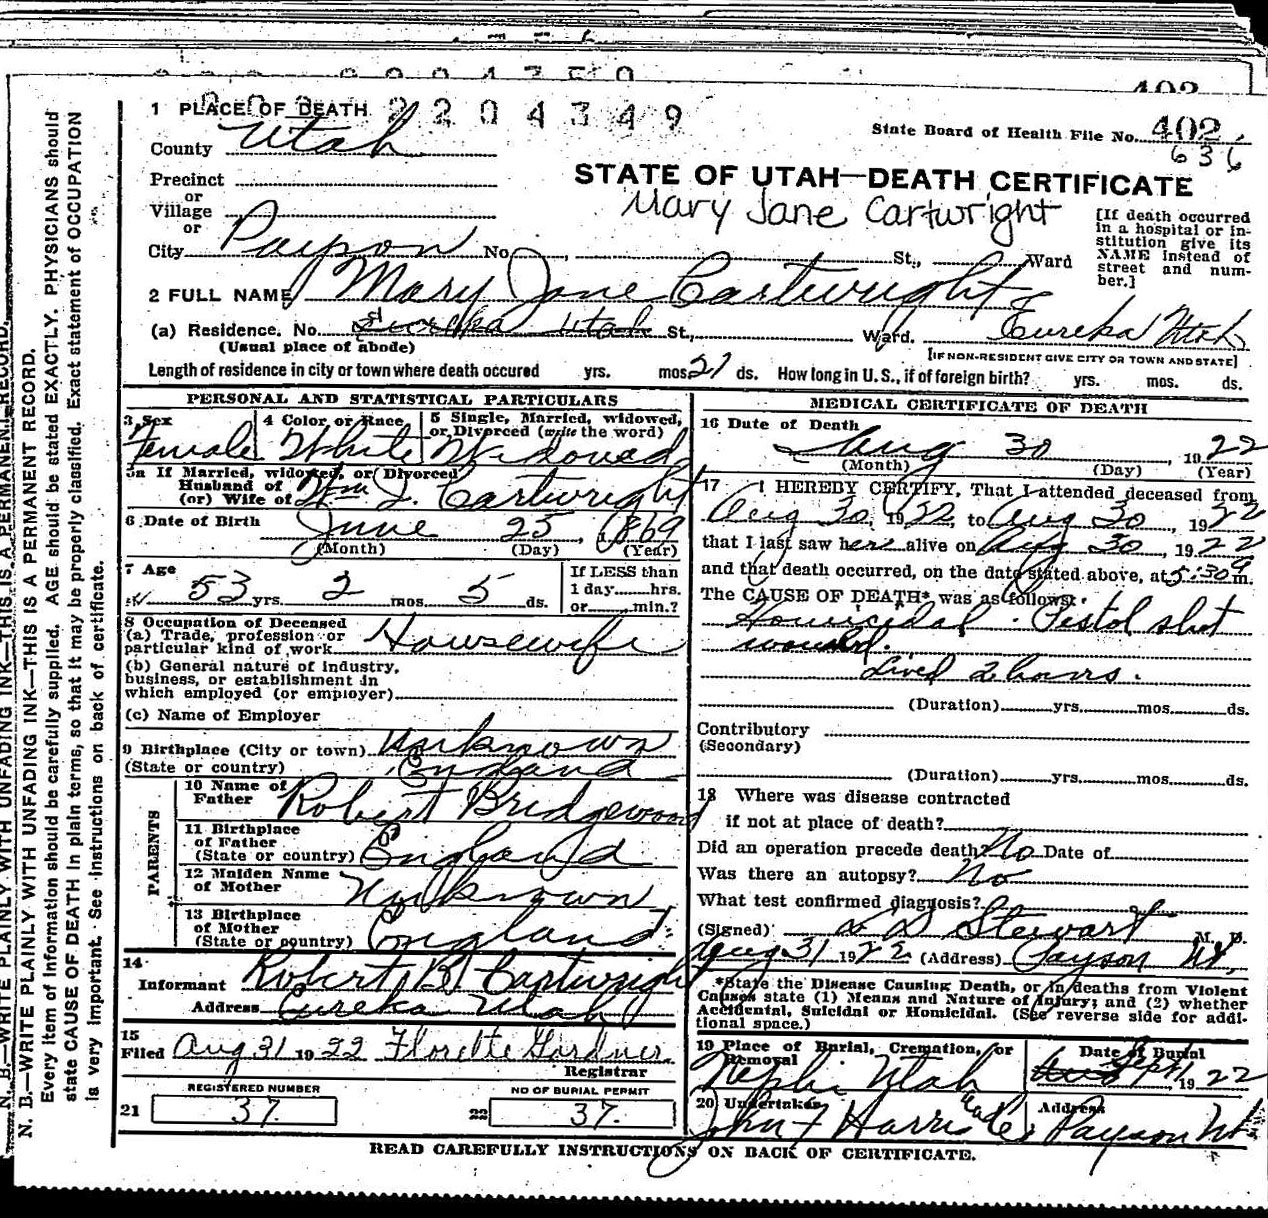 2204349
1 PLACE OF DEATH
County Utah
State Board of Health File No. 402
636
Precinct
or
Village
or
City Payson No. St., Ward
STATE OF UTAH—DEATH CERTIFICATE
Mary Jane Cartwright
[If death occurred in a hospital or institution give its NAME instead of street and number.]
2 FULL NAME Mary Jane Cartwright
(a) Residence. No. Eureka Utah St., Ward. Eureka Utah
(Usual place of abode) [IF NON-RESIDENT GIVE CITY OR TOWN AND STATE]
Length of residence in city or town where death occured yrs. mos. 21 ds. How long in U. S., if of foreign birth? yrs. mos. ds.
PERSONAL AND STATISTICAL PARTICULARS
3 Sex Female
4 Color or Race White
5 Single, Married, widowed, or Divorced (write the word) Widowed
5a If Married, widowed, or Divorced
Husband of
(or) Wife of Wm J. Cartwright
6 Date of Birth June 25, 1869
(Month) (Day) (Year)
7 Age 53 yrs. 2 mos. 5 ds.
If LESS than
1 day......hrs.
or......min.?
8 Occupation of Deceased
(a) Trade, profession or
particular kind of work Housewife
(b) General nature of industry,
business, or establishment in
which employed (or employer)
(c) Name of Employer
9 Birthplace (City or town) Unknown
(State or country) England
PARENTS
10 Name of
Father Robert Bridgewood
11 Birthplace
of Father
(State or country) England
12 Maiden Name
of Mother Unknown
13 Birthplace
of Mother
(State or country) England
14
Informant Robert B Cartwright
Address Eureka Utah
15
Filed Aug 31 1922 Florette Gardner
Registrar
REGISTERED NUMBER
21 37
NO OF BURIAL PERMIT
22 37.
MEDICAL CERTIFICATE OF DEATH
16 Date of Death
Aug 30, 1922
(Month) (Day) (Year)
17 I HEREBY CERTIFY, That I attended deceased from
Aug 30, 1922, to Aug 30, 1922
that I last saw her alive on Aug 30, 1922
and that death occurred, on the date stated above, at 5:30 m.
The CAUSE OF DEATH* was as follows:
Homicidal. Pistol shot
wound.
Lived 2 hours.
(Duration) yrs. mos. ds.
Contributory
(Secondary)
(Duration) yrs. mos. ds.
18 Where was disease contracted
if not at place of death?
Did an operation precede death? No Date of
Was there an autopsy? No
What test confirmed diagnosis?
(Signed) L D Stewart M. D.
Aug 31 1922 (Address) Payson Ut.
*State the Disease Causing Death, or in deaths from Violent
Causes state (1) Means and Nature of Injury; and (2) whether
Accidental, Suicidal or Homicidal. (See reverse side for additional space.)
19 Place of Burial, Cremation, or
Removal
Nephi Utah
Date of Burial
Sept 1, 1922
20 Undertaker
John F Harris
Address
Payson Ut
READ CAREFULLY INSTRUCTIONS ON BACK OF CERTIFICATE.
N. B.—WRITE PLAINLY WITH UNFADING INK—THIS IS A PERMANENT RECORD.
N. B.—WRITE PLAINLY WITH UNFADING INK—THIS IS A PERMANENT RECORD.
Every item of information should be carefully supplied. AGE should be stated EXACTLY. PHYSICIANS should
state CAUSE OF DEATH in plain terms, so that it may be properly classified. Exact statement of OCCUPATION
is very important. See instructions on back of certificate.